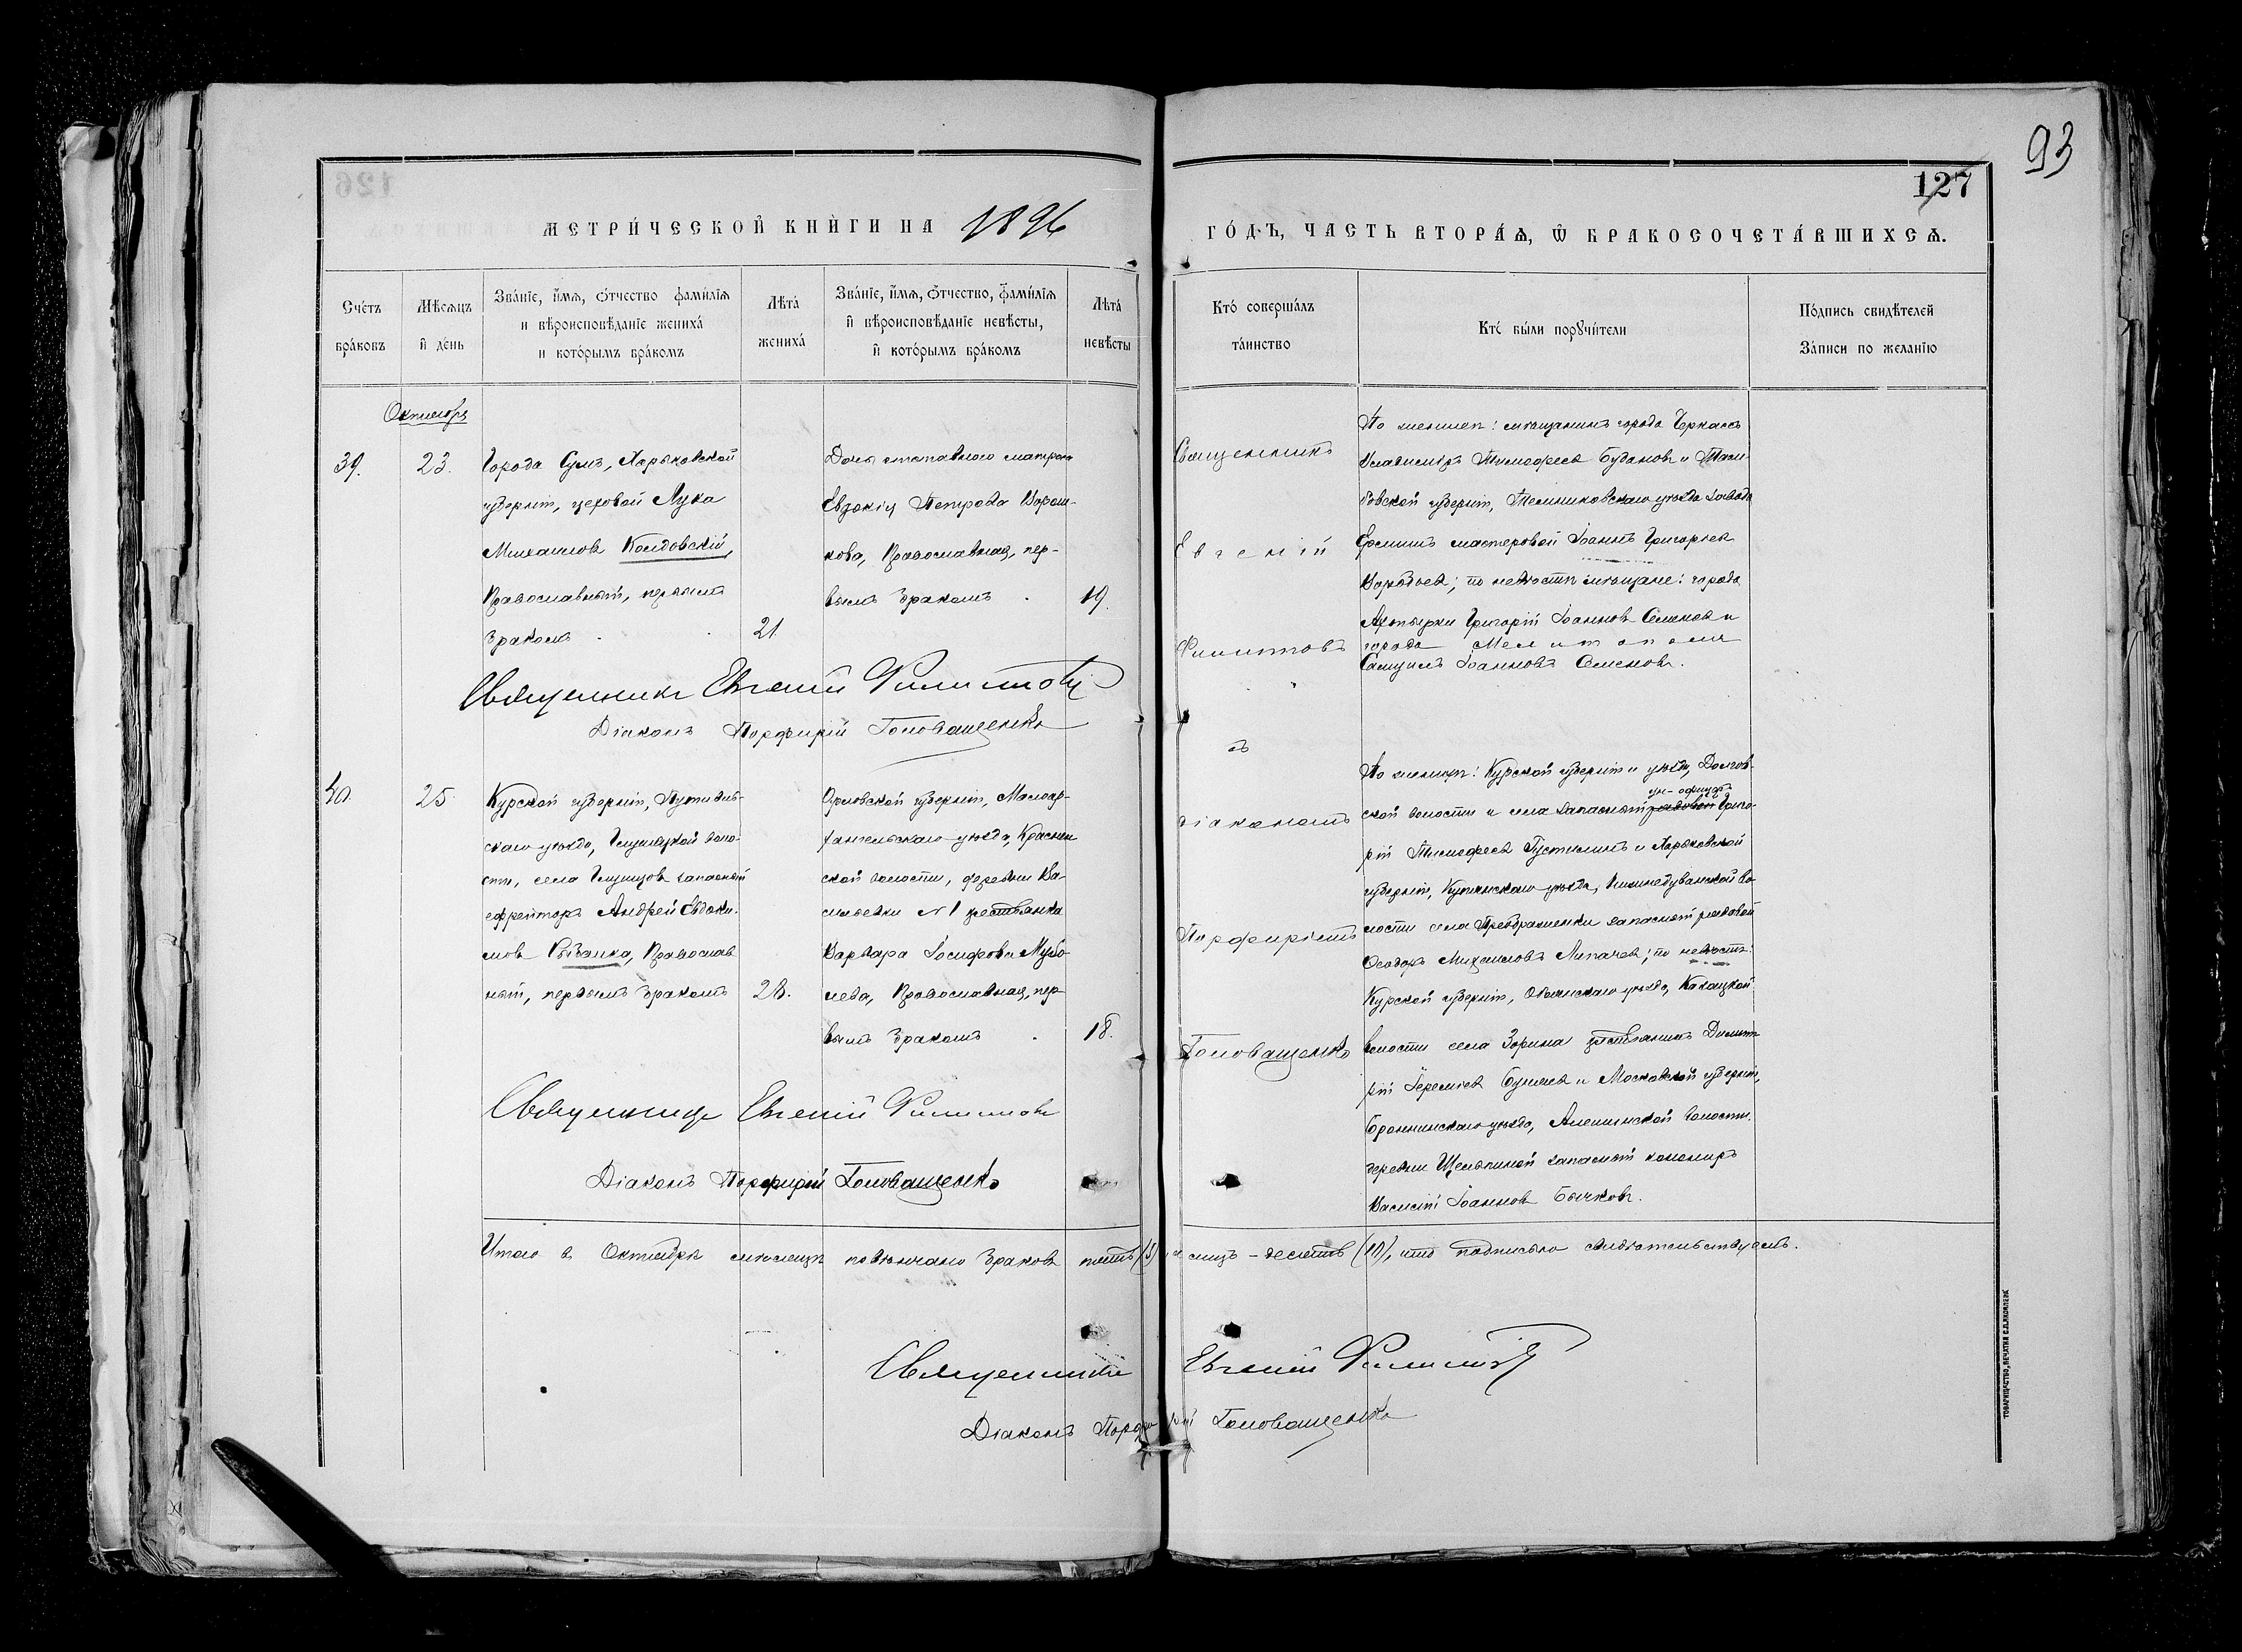 93
127
МЕТРИ́ЧЕСКОЙ КНИ́ГИ НА 1896
ГО́ДЪ, ЧАСТЬ ВТОРА́Ѧ, Ѡ҆ БРАКОСОЧЕТА́ВШИХСѦ.
Сче́тъ
бра́ковъ
Мѣ́сѧцъ
и҆ де́нь
Зва́нїе, и҆́мѧ, ѻ҆́тчество фами́лїѧ
и вѣроисповѣ́данїе жениха́
и кото́рымъ бра́комъ
Лѣта́
жениха́
Зва́нїе, и҆́мѧ, ѻ҆́тчество, фами́лїѧ
и҆ вѣроисповѣ́данїе невѣ́сты,
и҆ кото́рымъ бра́комъ
Лѣта́
невѣ́сты
Кто́ соверша́лъ
та́инство
Кто́ бы́ли порꙋчи́тели
По́дпись свидѣ́телей
За́писи по жела́нїю
Октябрь
39.
23.
Города Сумъ, Харьковской
губерніи, цеховой Лука
Михаиловъ Колдовскій,
Православный, первымъ
бракомъ
21
Дочь отставного матроса
Евдокія Петрова Ворон-
кова, Православная, пер-
вымъ бракомъ
19.
Священникъ
Евгеній
Филипповъ
По женихѣ: мѣщанинъ города Черкасъ
Владиміръ Тимофеевъ Будановъ и Там-
бовской губерніи, Темниковскаго уѣзда завода
мастеровой Іоаннъ Григорьевъ
Воробьевъ; по невѣстѣ мѣщане: города
Ахтырки Григорій Іоанновъ Семеновъ и
города Мелитополя
Самуилъ Іоанновъ Семеновъ.
Священникъ Евгеній Филипповъ
Діаконъ Порфирій Головащенко
съ
діакономъ
Порфиріемъ
Головащенко
40.
25
Курской губерніи, Путивль-
скаго уѣзда, Глушецкой воло-
сти, села Глушцовъ запасный
ефрейторъ Андрей Евдоки-
мовъ Рыбалка, Православ
ный, первымъ бракомъ
28.
Орловской губерніи, Малоар-
хангельскаго уѣзда, Краснен
ской волости, деревни Ва-
сильевки №1 крестьянка
Варвара Іосифова
лева, Православная, пер-
вымъ бракомъ
18.
По женихѣ: Курской губерніи и уѣзда, Долгов-
ун-офицеръ
ской волости и села запасный рядовой Григо-
рій Тимофеевъ Пустилинъ и Харьковской
губерніи, Купянскаго уѣзда, во-
лости села Преображенки запасный рядовой
Ѳеодоръ Михаиловъ Лыпачевъ; по невѣстѣ:
Курской губерніи, Обоянскаго уѣзда, Казацкой
волости села Зорина крестьянинъ Димит-
рій Іереміевъ Буняевъ и Московской губерніи,
Бронницкаго уѣзда, волости
деревни Щелпиной запасный канониръ
Василій Іоанновъ Бычковъ.
Священникъ Евгеній Филипповъ
Діаконъ Порфирій Головащенко
Итого въ Октябрѣ мѣсяцѣ повѣнчано браковъ пять (5), а лицъ – десять (10), что подписью свидѣтельствуемъ.
Священникъ Евгеній Филипповъ
Діаконъ Порфирій Головащенко